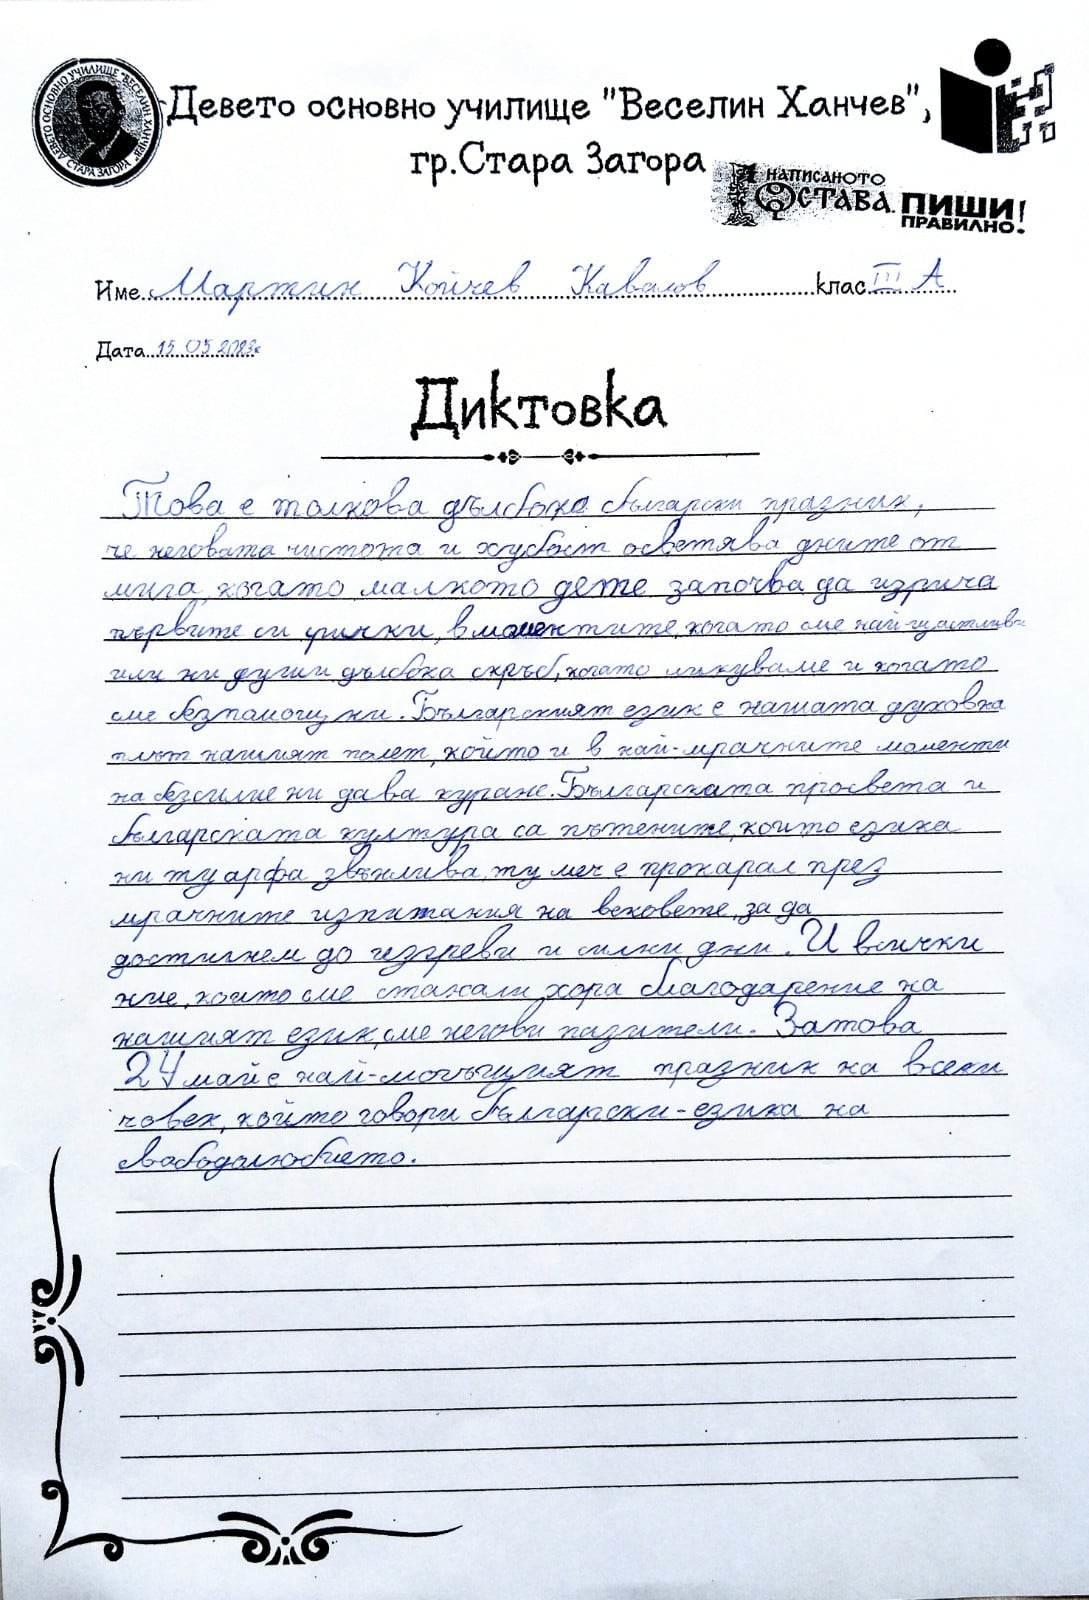 ДЕВЕТО ОСНОВНО УЧИЛИЩЕ "ВЕСЕЛИН ХАНЧЕВ" СТАРА ЗАГОРА
Девето основно училище "Веселин Ханчев",
гр.Стара Загора
НАПИСАНОТО
ОСТАВА. ПИШИ
ПРАВИЛНО!
Име Мартин Койчев Кавалов клас III А
Дата 15.05.2023г
Диктовка
Това е толкова дълбоко български празник,
че неговата чистота и хубост осветява дните от
мига, когато малкото дете започва да изрича
първите си срички, в моментите, когато сме най-щастливи
или ни души дълбока скръб, когато ликуваме и когато
сме безпомощни. Българският език е нашата духовна
плът нашият полет, който и в най-мрачните моменти
на безсилие ни дава кураж. Българската просвета и
българската култура са пътените, които езика
ни ту арфа звънлива, ту меч е прокарал през
мрачните изпитания на вековете, за да
достигнем до изгреви и силни дни. И всички
ние, които сме станали хора благодарение на
нашият език, сме негови пазители. Затова
24 май е най-могъщият празник на всеки
човек, който говори български-езика на
свободолюбието.